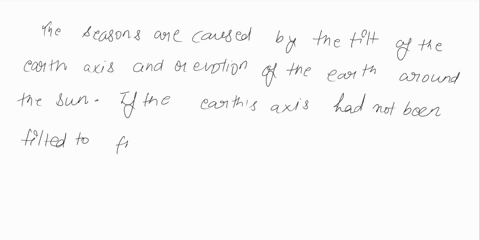 The seasons are caused by the tilt of the
earth axis and orevotion of the earth around
the sun. If the earth's axis had not been
filted to fi